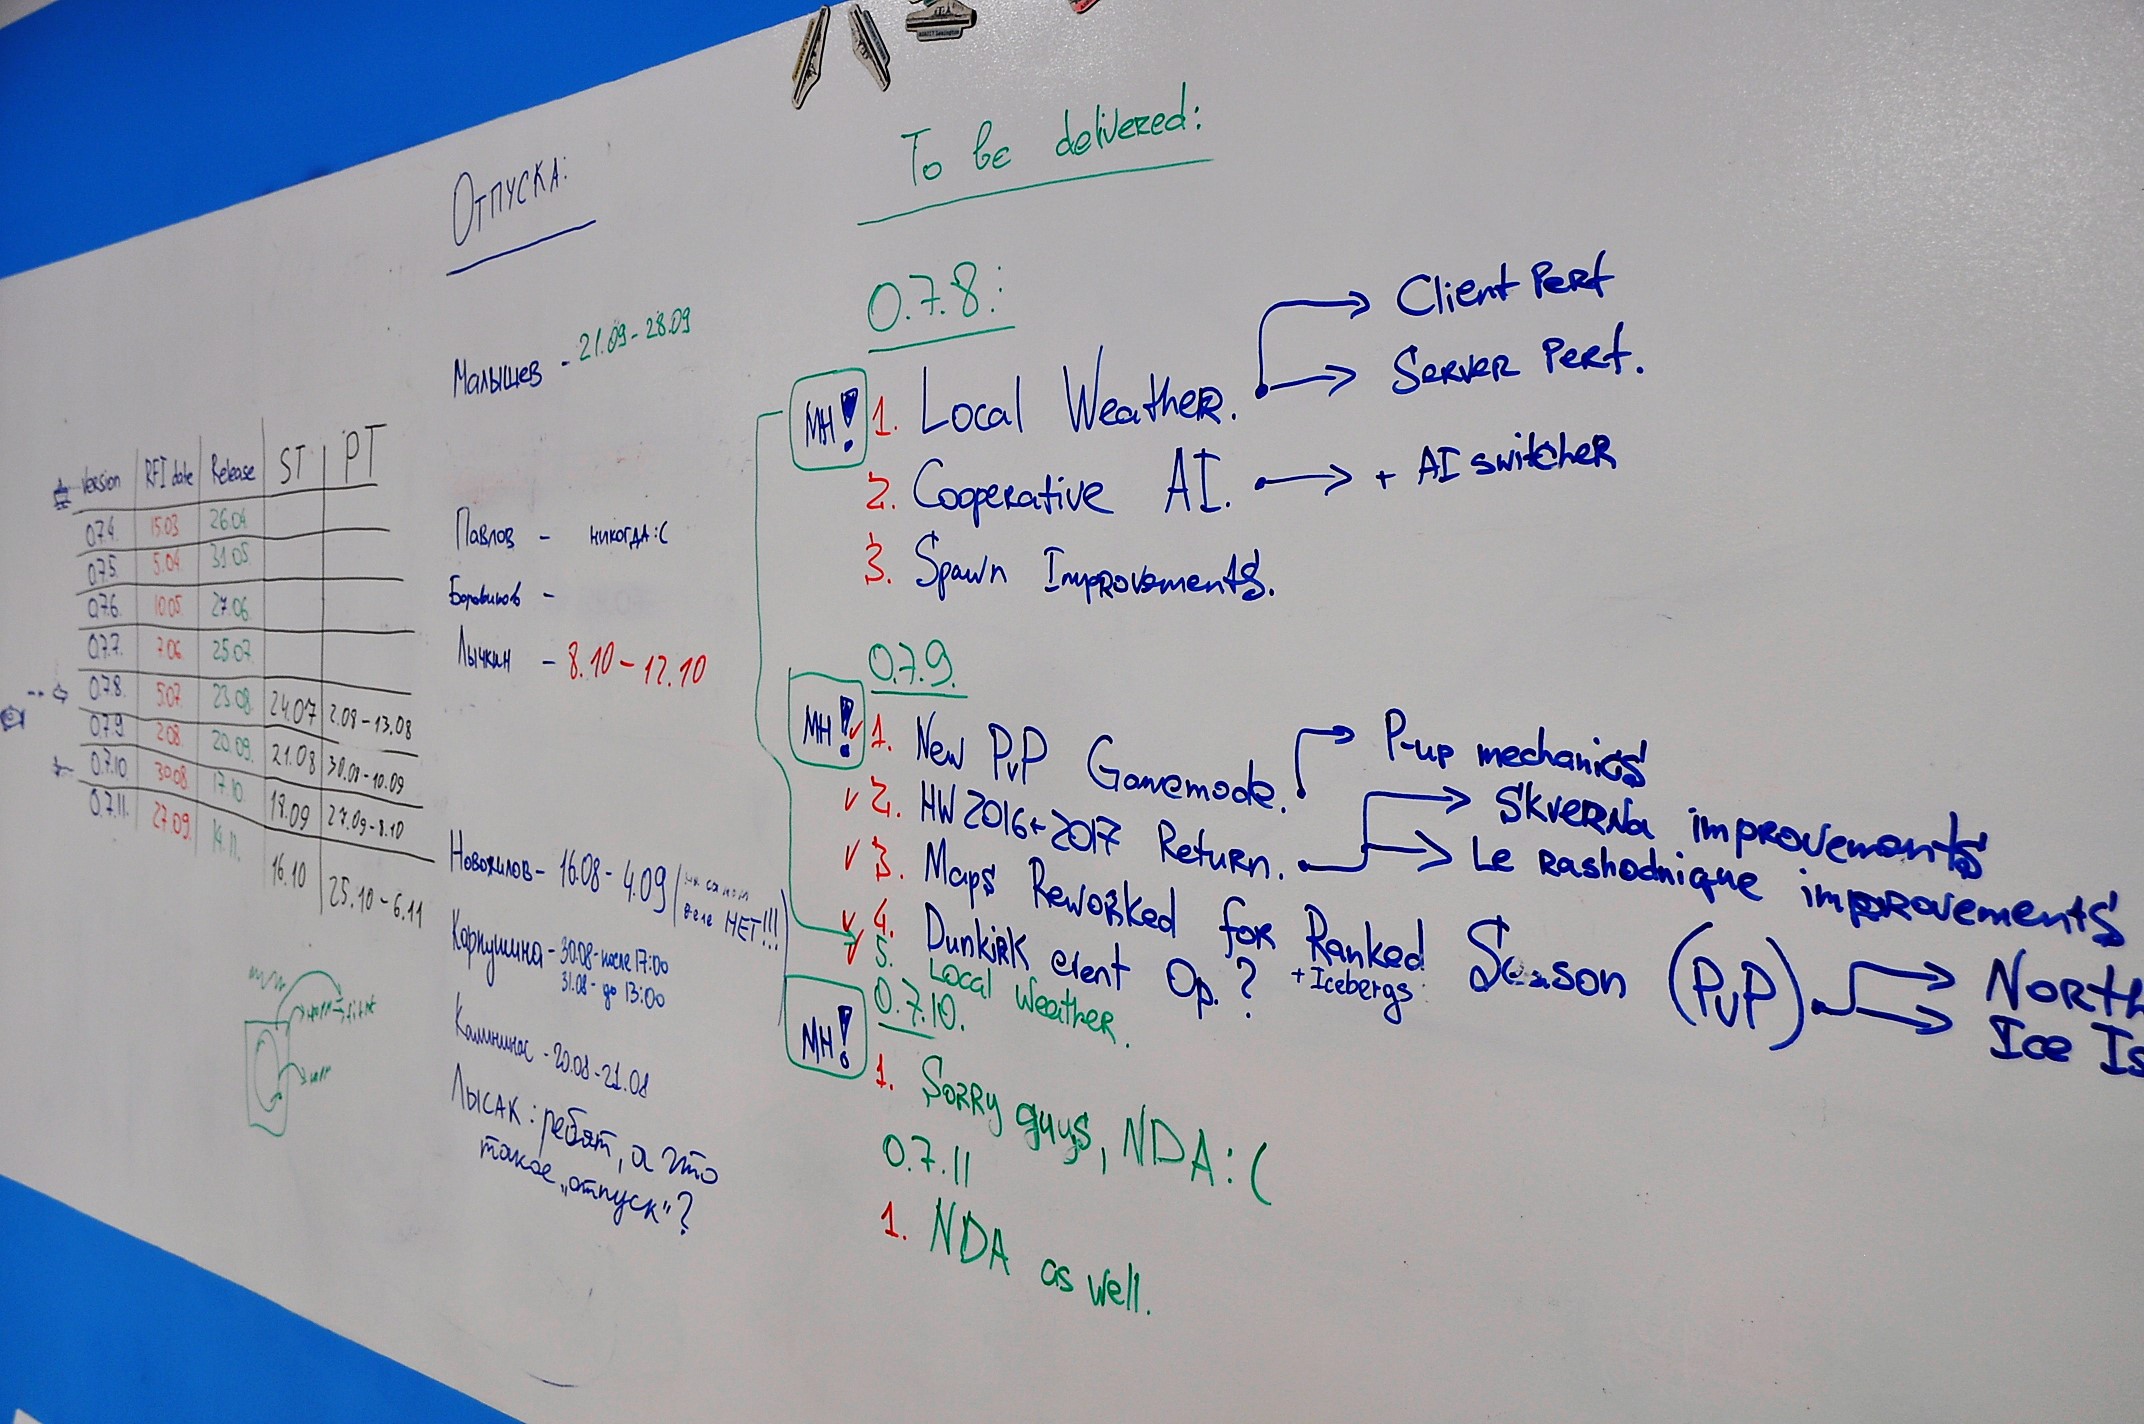 Отпуска:
Малышев - 21.09-28.09
Павлов - никогда :(
Боровиков -
Лычкин - 8.10-12.10
Новожилов - 16.08-4.09 (на самом
деле НЕТ!!!)
Карпушина - 30.08-после 17:00
31.08-до 13:00
20.08-21.08
Лысак: ребят, а что
такое "отпуск"?
Version RFI date Release ST PT
0.7.4. 15.03 26.04
0.7.5. 5.04 31.05
0.7.6. 10.05 27.06
0.7.7. 7.06 25.07
0.7.8. 5.07 23.08 24.07 2.08-13.08
0.7.9 2.08 20.09. 21.08 30.08-10.09
0.7.10. 30.08 17.10 18.09 27.09-8.10
0.7.11. 27.09. 14.11. 16.10 25.10-6.11
To be delivered:
0.7.8:
MH! 1. Local Weather. Client Perf
Server Perf.
2. Cooperative AI. + AI switcher
3. Spawn Improvements.
0.7.9.
MH! 1. New PvP Gamemode. P-up mechanics
2. HW 2016+2017 Return. Skverna improvements
Le rashodnique improvements
3. Maps Reworked for Ranked Season (PvP) North
Ice Is
4. Dunkirk event Op. ? + Icebergs
5. Local Weather.
0.7.10.
MH! 1. Sorry guys, NDA :(
0.7.11
1. NDA as well.